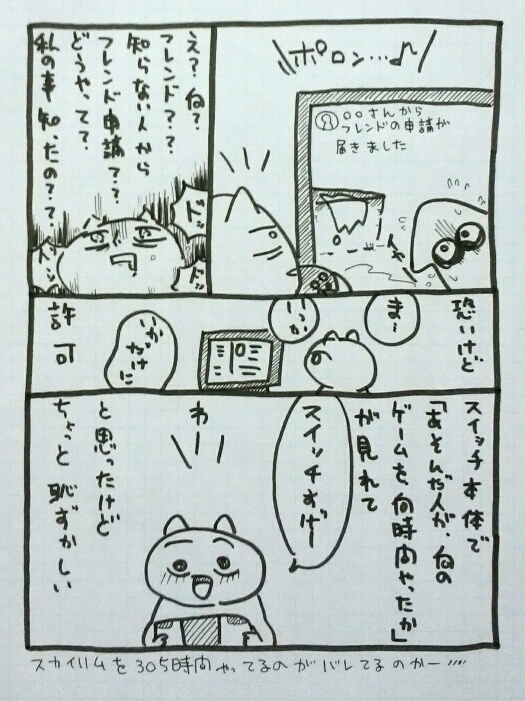 ポロン…♪
○○さんから
フレンドの申請が
届きました
え?何?
フレンド??
知らない人から
フレンド申請??
どうやって?
私の事知ったの??
ドッ
ドッ
ドッ
恐いけど
ま〜
いっか
いかだけに
許可
スイッチ本体で
「あそんだ人が、何の
ゲームを、何時間やったか」
が見れて
スイッチすげー
わー
と思ったけど
ちょっと恥ずかしい
スカイリムを305時間やってるのがバレてるのかー